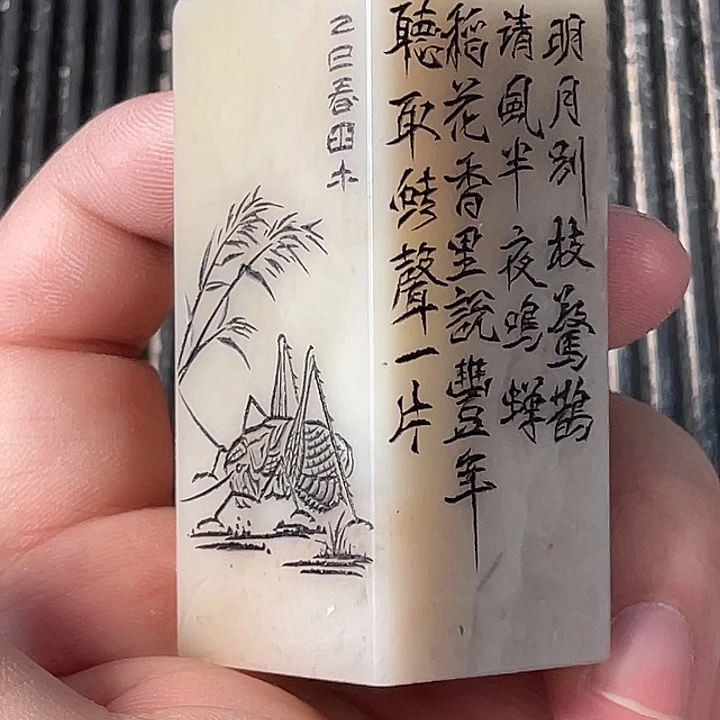 明月别枝驚鵲
请風半夜鳴蟬
稻花香里說豐年
聽取蛙聲一片
乙巳春木